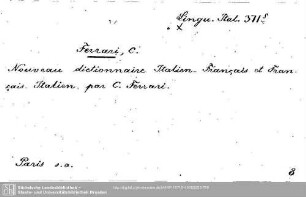 Lingu. Ital. 371ˢ
x
Ferrari, C.
Nouveau dictionnaire Italien-Français et Fran-
çais-Italien par C. Ferrari.
Paris s.a.
8
Sächsische Landesbibliothek -
Staats- und Universitätsbibliothek Dresden